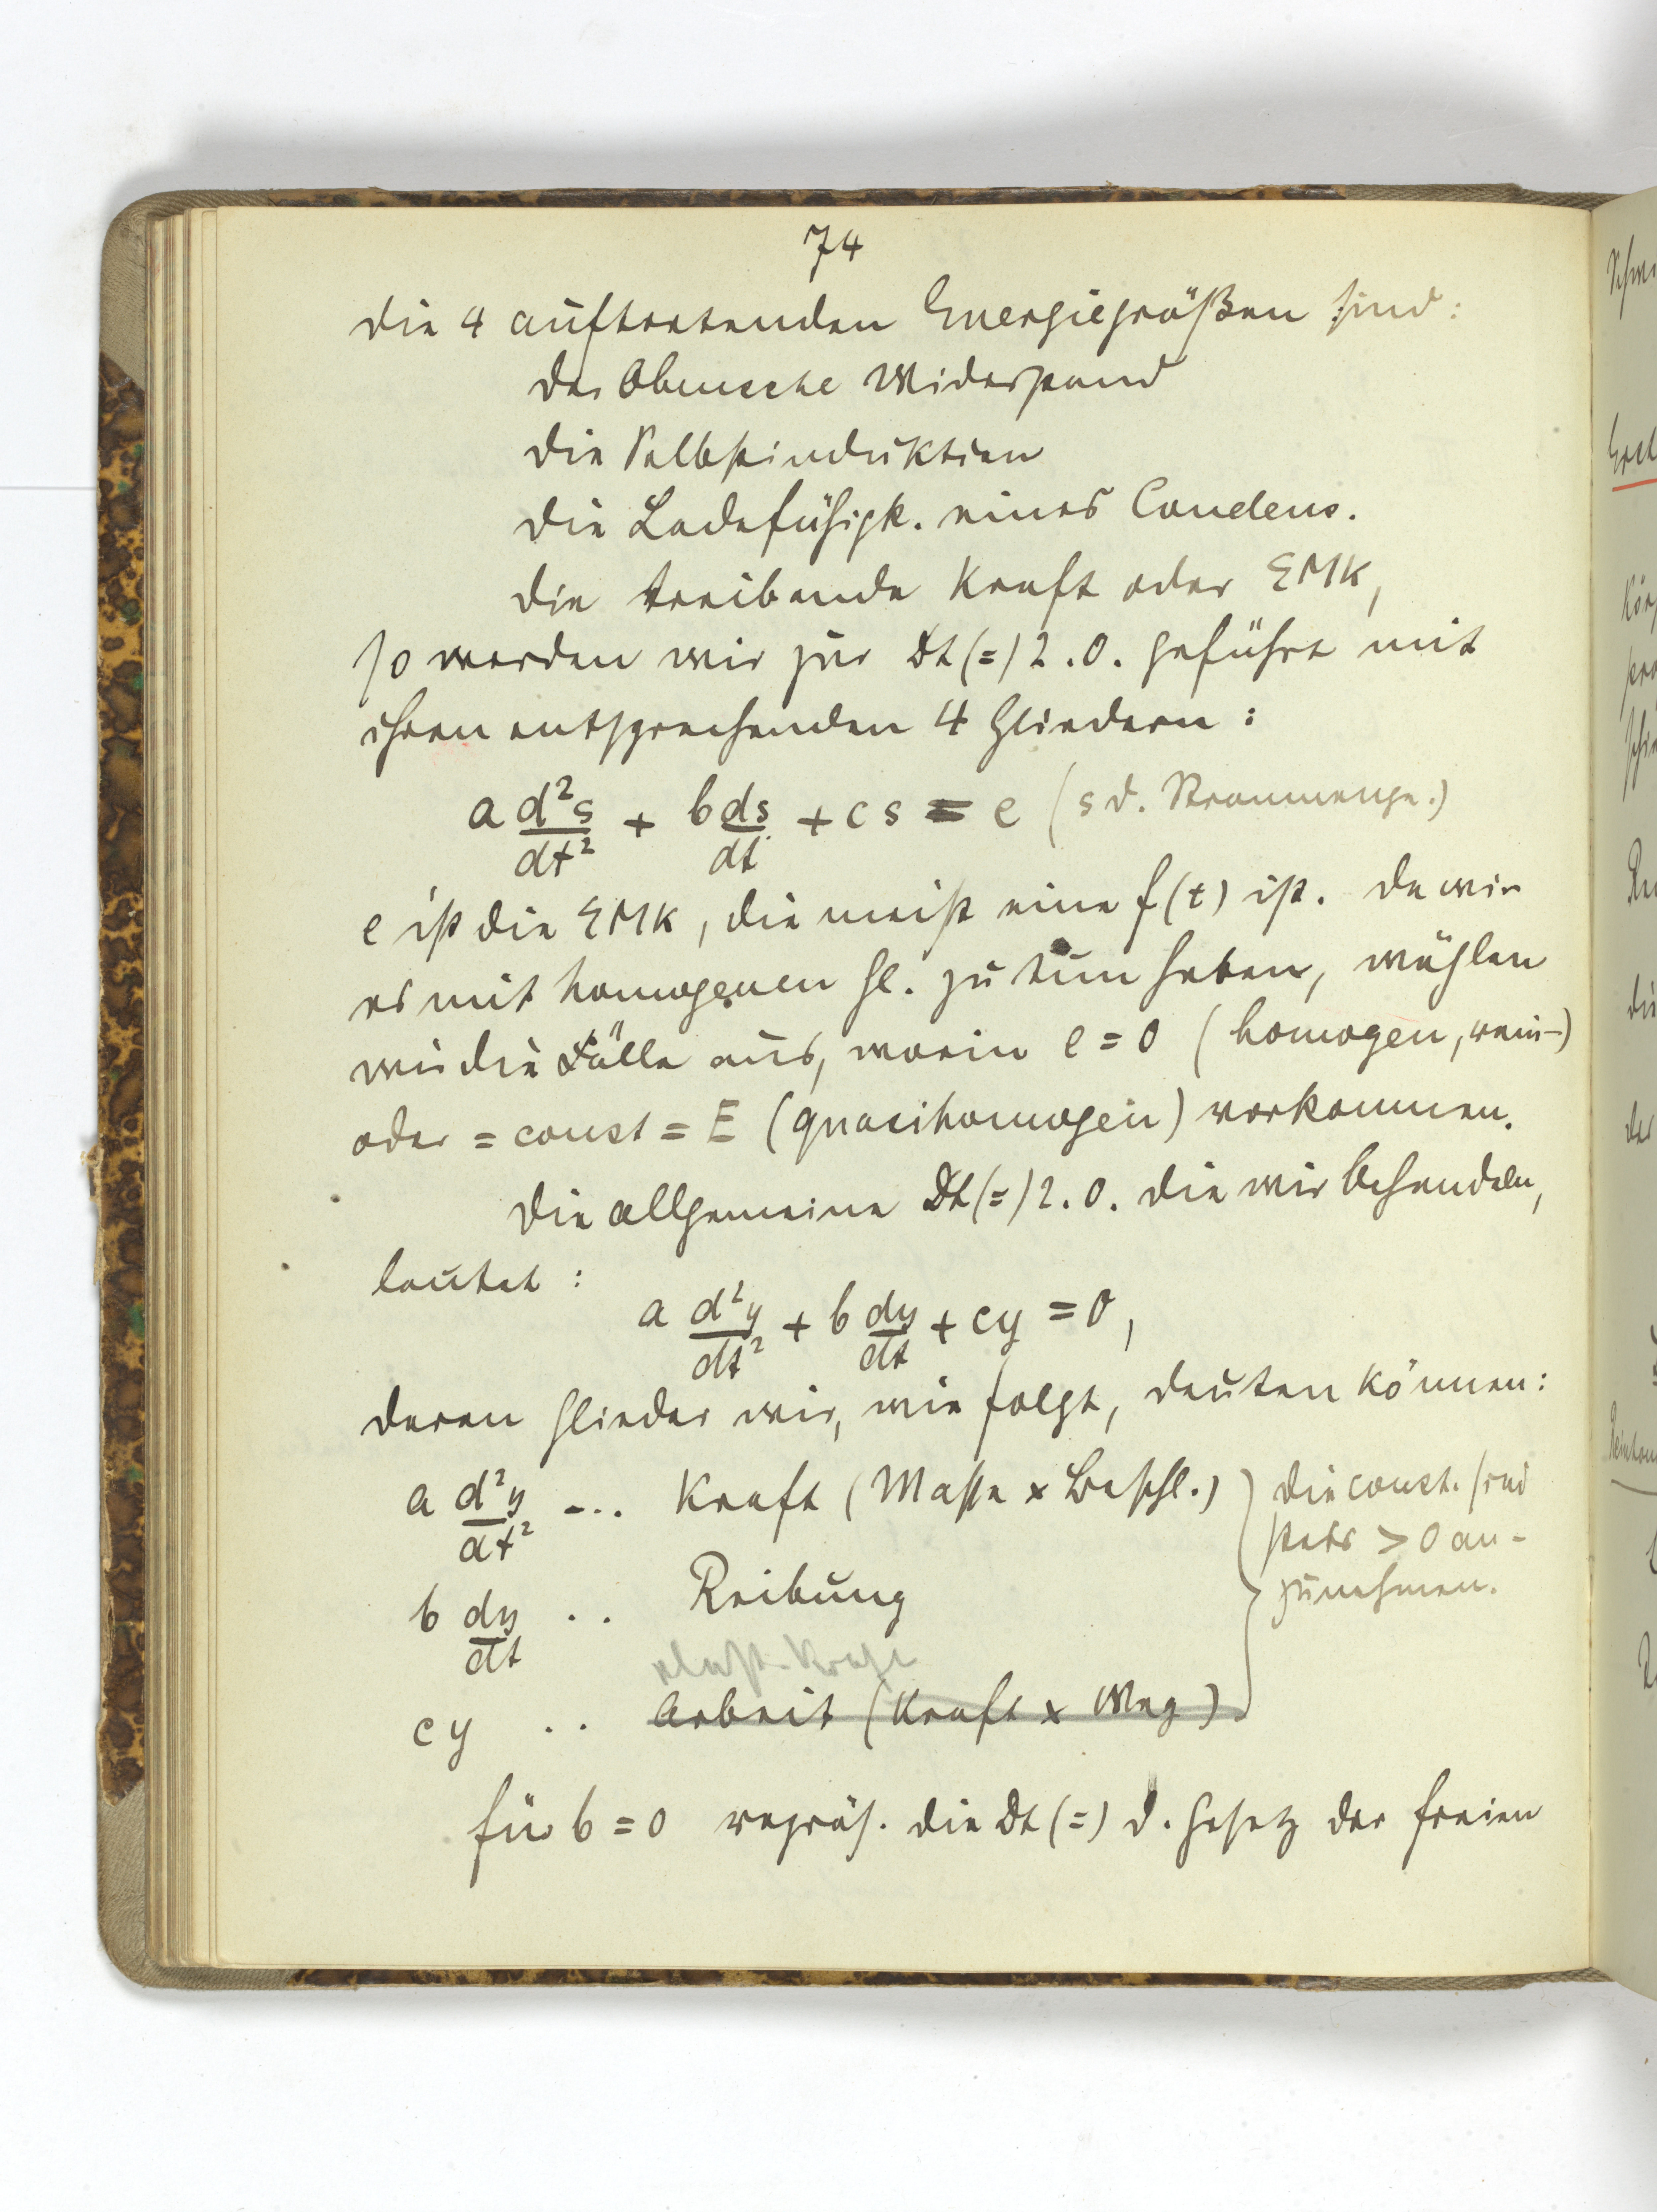 74
die 4 auftretenden Energiegrößen sind:
der Ohmsche Widerstand
die Selbstinduktion
die Ladefähigk. eines Condens.
die treibende Kraft oder EMK,
so werden wir zur Dt(=) 2.O. geführt mit
ihren entsprechenden 4 Gliedern:
a d²s/dt² + b ds/dt + cs = e (s d. Strommenge.)
e ist die EMK, die meist eine f(t) ist. Da wir
es mit homogenen Gl. zu tun haben, wählen
wir die Fälle aus, worin e = 0 (homogen, rein-)
oder = const = E (quasihomogen) vorkommen.
Die allgemeine Dt(=) 2.O. die wir behandeln,
lautet:
a d²y/dt² + b dy/dt + cy = 0,
deren Glieder wir, wie folgt, deuten können:
a d²y/dt² ... Kraft (Masse × Beschl.) die const. sind
stets > 0 an-
zunehmen.
b dy/dt .. Reibung
elast. Kraft
cy .. Arbeit (Kraft × Weg)
für b = 0 repräs. die Dt(=) d. Gesetz der freien